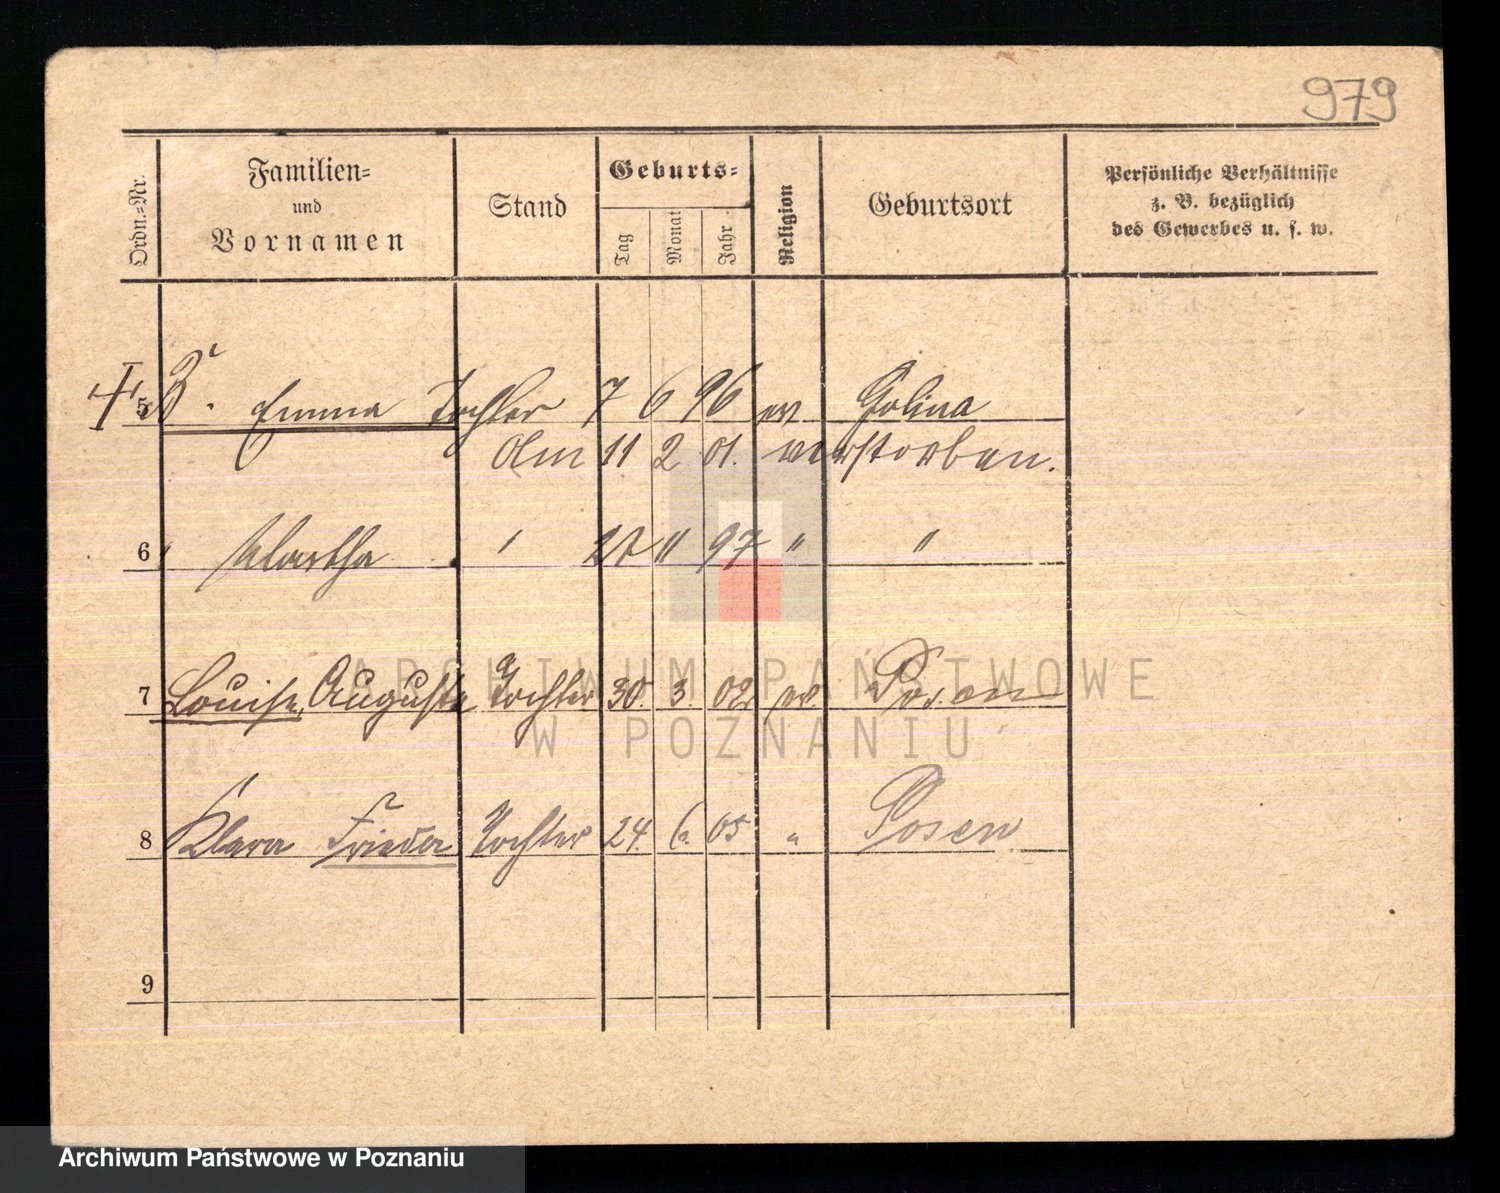 979
Ordn.-Nr.
Familien-
und
Vornamen
Stand
Geburts-
Tag
Monat
Jahr
Religion
Geburtsort
Persönliche Verhältnisse
z. B. bezüglich
des Gewerbes u. s. w.
5 Emma Tochter 7 6 96 ev Golina
Am 11 2 01. verstorben.
6 Martha " 27 " 97 " "
7 Louise, Auguste Tochter 30. 3. 02 ev. Posen
8 Klara Frieda Tochter 24. 6. 05 " Posen
9
ARCHIWUM PAŃSTWOWE
W POZNANIU
Archiwum Państwowe w Poznaniu